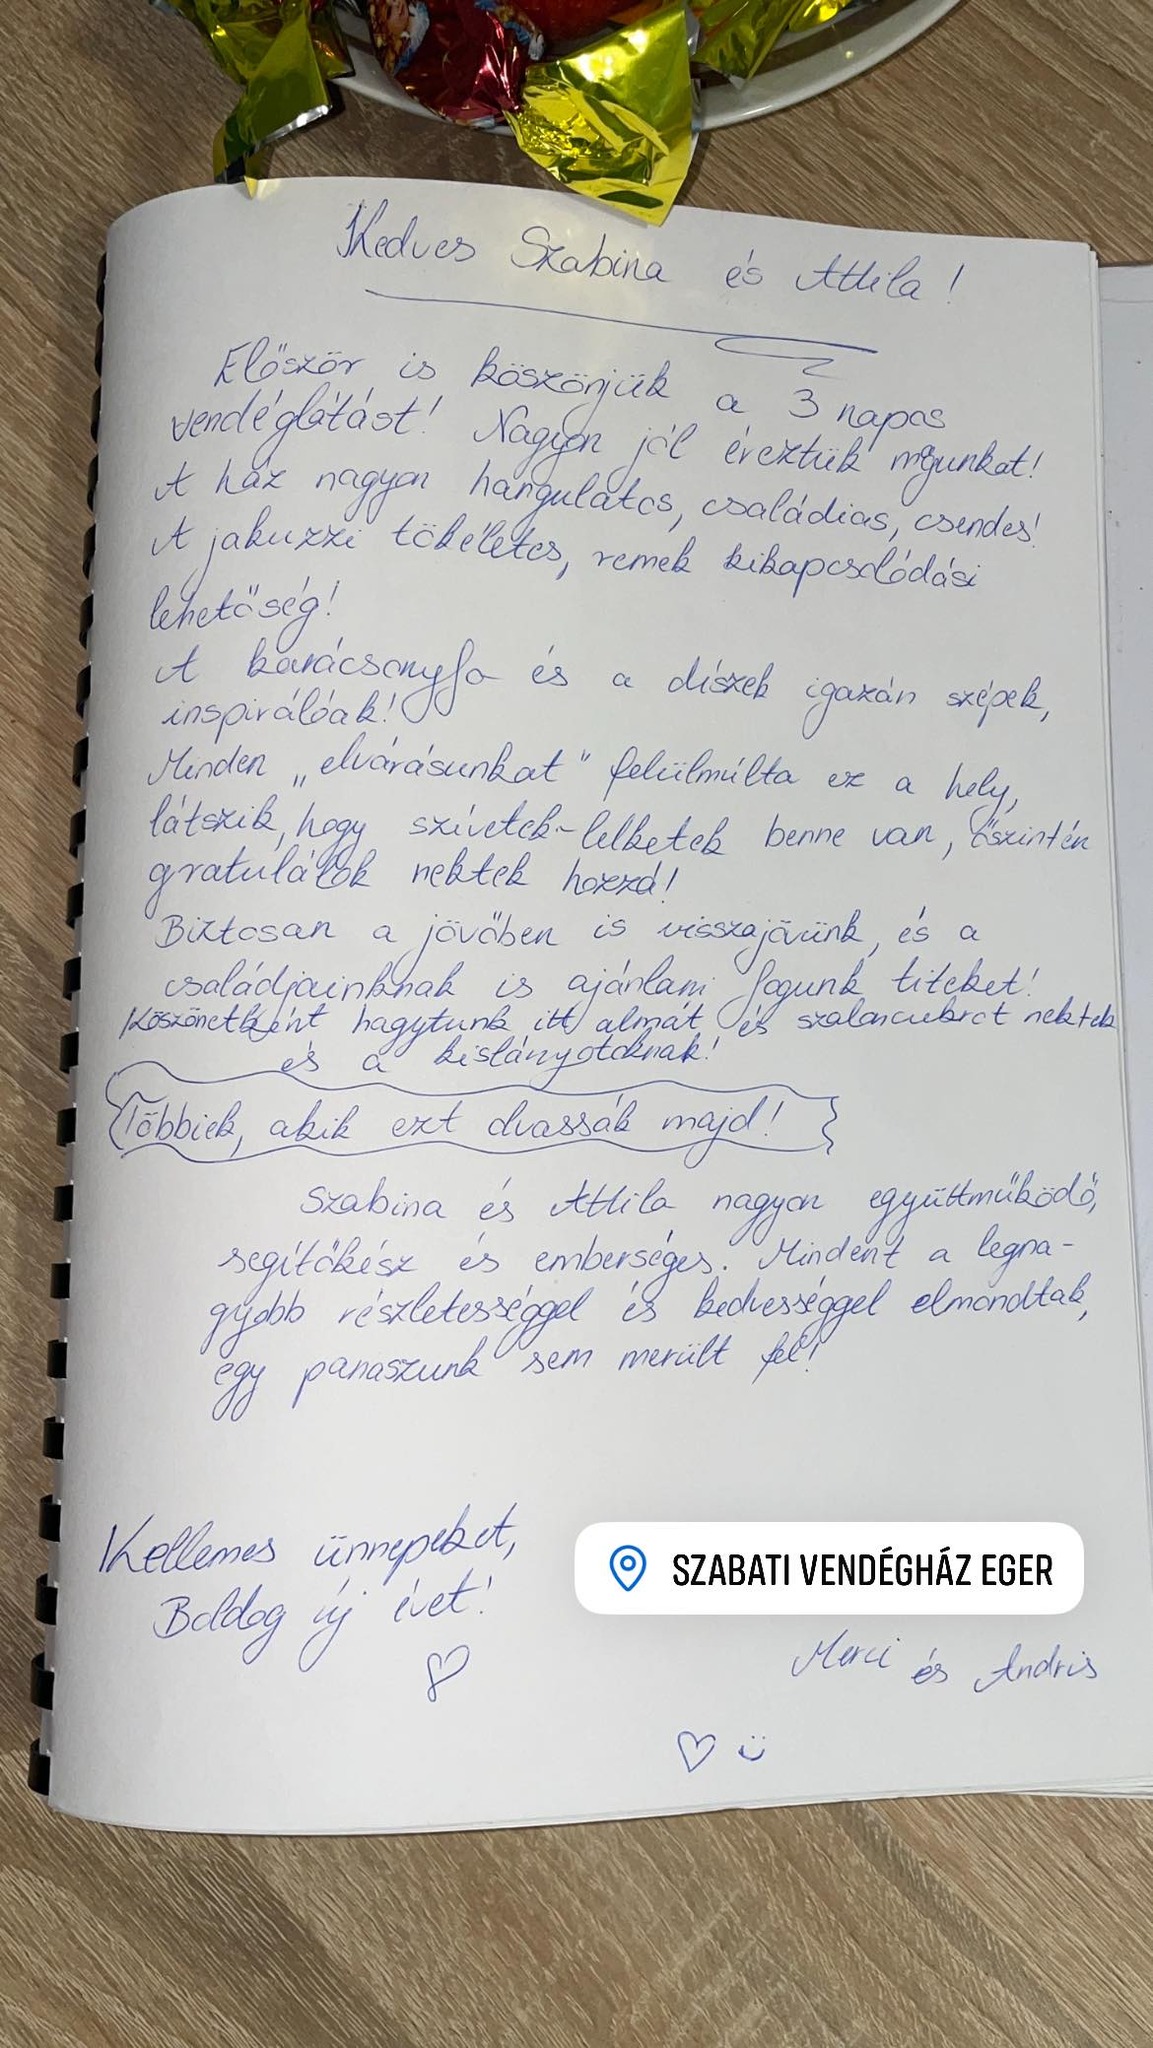 Kedves Szabina és Attila!
Először is köszönjük a 3 napos
vendéglátást! Nagyon jól éreztük magunkat!
A ház nagyon hangulatos, családias, csendes!
A jakuzzi tökéletes, remek kikapcsolódási
lehetőség!
A karácsonyfa és a díszek igazán szépek,
inspirálóak!
Minden „elvárásunkat" felülmúlta ez a hely,
látszik, hogy szívetek-lelketek benne van, őszintén
gratulálok nektek hozzá!
Biztosan a jövőben is visszajövünk, és a
családjainknak is ajánlani fogunk titeket!
Köszönetként hagytunk itt almát és szaloncukrot nektek
és a kislányotoknak!
Többiek, akik ezt olvassák majd!
Szabina és Attila nagyon együttműködő,
segítőkész és emberséges. Mindent a legna-
gyobb részletességgel és kedvességgel elmondtak,
egy panaszunk sem merült fel!
Kellemes ünnepeket,
Boldog új évet!
SZABATI VENDÉGHÁZ EGER
Merci és Andris